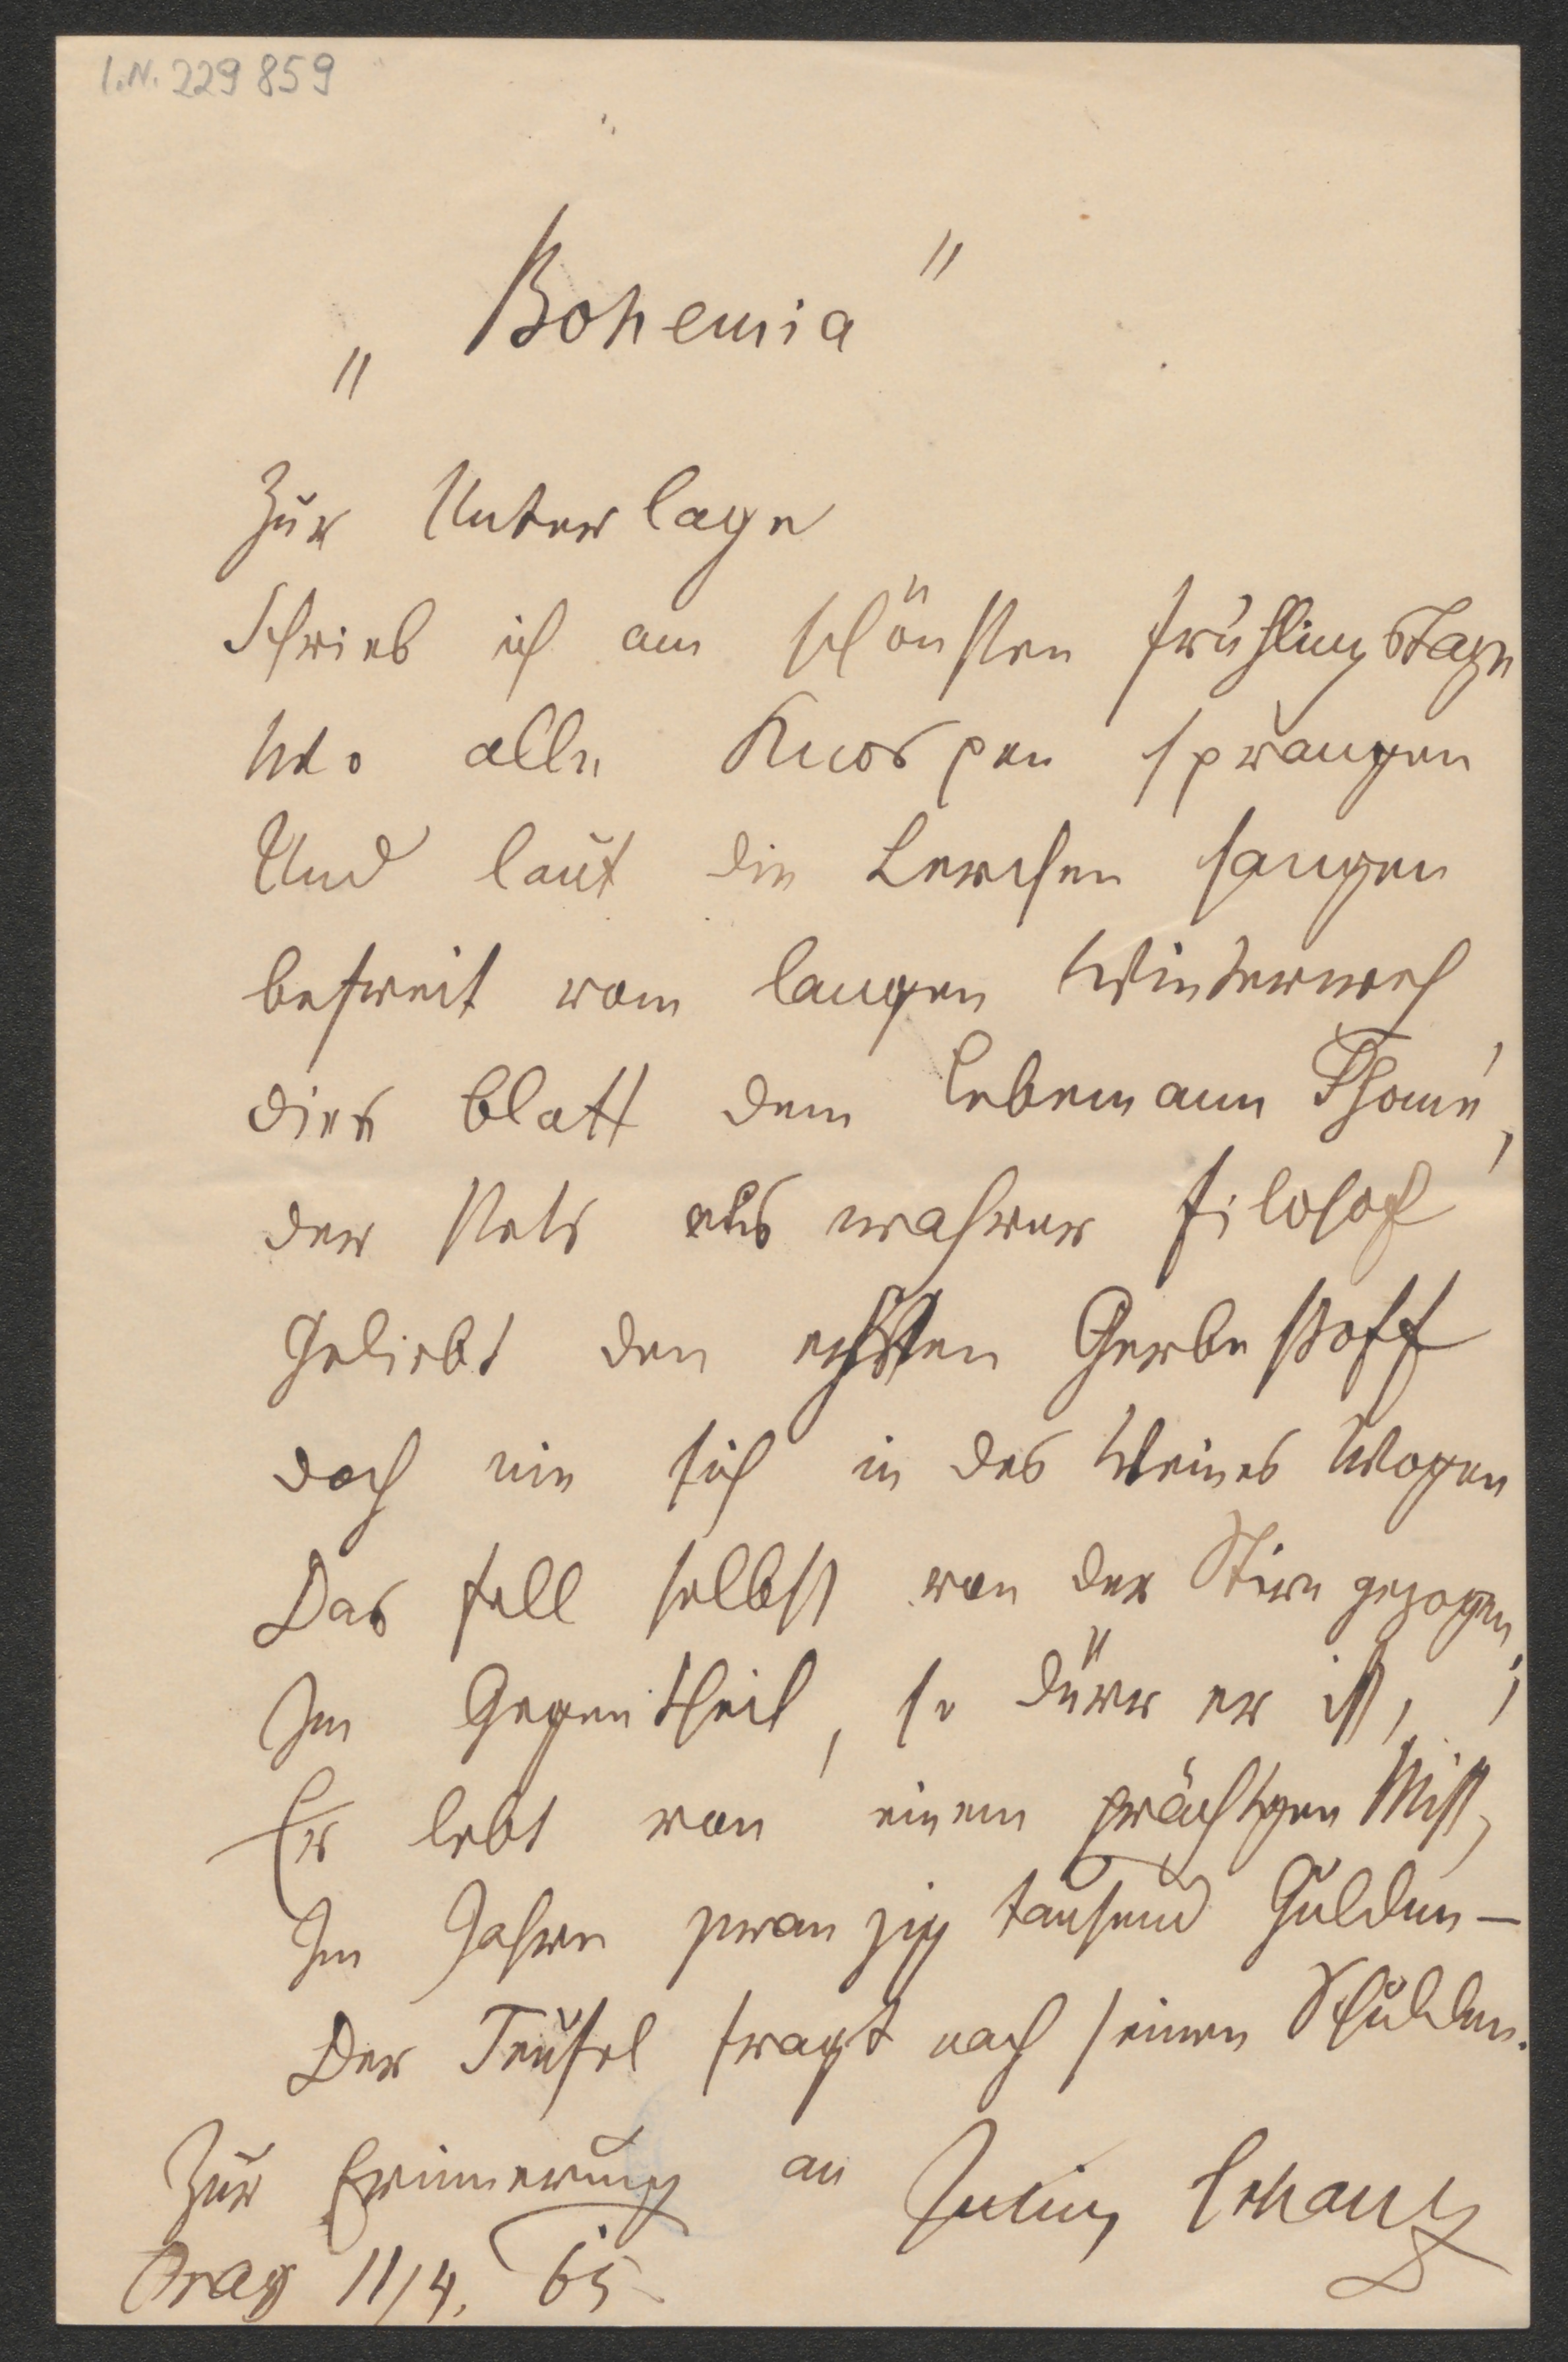 I.N. 229859
„Bohemia"
Zur Unterlage
Schrieb ich am schönsten Frühlingstage
Wo alle Knospen sprangen
Und laut die Lerchen sangen
befreit vom langen Winterweh
dies Blatt dem Lebemann Thomé,
der stets als wahrer Filosof
Geliebt den echten Gerbestoff
doch nie sich in des Weines Wogen
Das Fell selbst von der Stirn gezogen;
Im Gegentheil, so dürr er ist,
Er lebt von einem prächtgen Mist,
Im Jahre zwanzig tausend Gulden –
Der Teufel fragt nach seinen Schulden.
Zur Erinnerung an Julius
Prag 11/4. 65